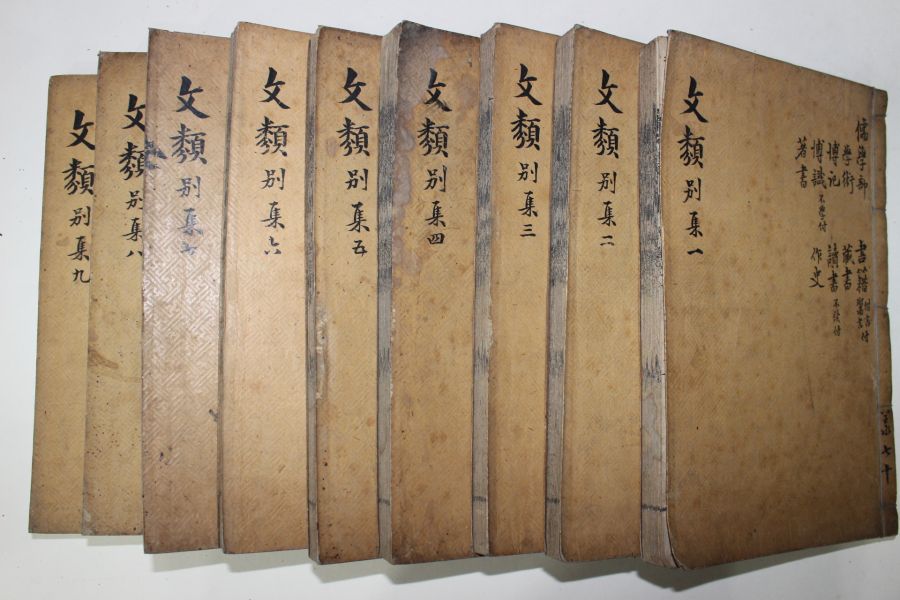 儒學部
學術
博記
博識 不學付
著書
書籍
藏書
讀書 不讀付
作史
文類 別集一
文類 別集二
文類 別集三
文類 別集四
文類 別集五
文類 別集六
文類 別集七
文類 別集八
文類 別集九
共七十